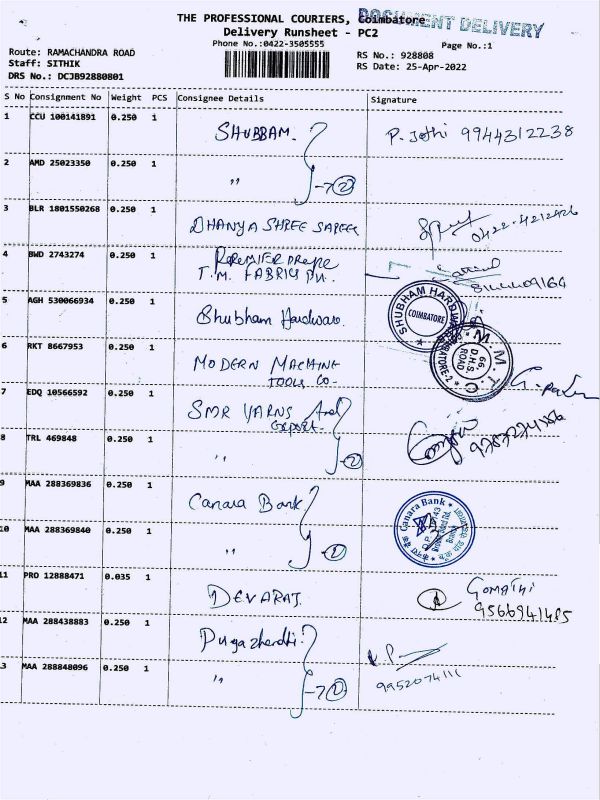 THE PROFESSIONAL COURIERS, Coimbatore
DOCUMENT DELIVERY
Delivery Runsheet - PC2
Phone No.:0422-3505555
Page No.:1
Route: RAMACHANDRA ROAD
RS No.: 928808
Staff: SITHIK
RS Date: 25-Apr-2022
DRS No.: DCJB92880801
S No Consignment No Weight PCS Consignee Details Signature
1 CCU 100141891 0.250 1 SHUBBAM. P. Jothi 9944312238
2 AMD 25023350 0.250 1 " 2
3 BLR 1801550268 0.250 1 DHANYA SHREE SAREE 0422-4212426
4 BWD 2743274 0.250 1 PREMIER
T.M. FABRICS
5 AGH 530066934 0.250 1 Shubham Hardware.
SHUBHAM HARDWARE
COIMBATORE
COIMBATORE-2
6 RKT 8667953 0.250 1 MODERN MACHINE
TOOLS CO-
M. M. T. C
66,
D.H.S.
ROAD
7 EDQ 10566592 0.250 1 SMR YARNS And
Export-
8 TRL 469848 0.250 1 " 2
9 MAA 288369836 0.250 1 Canara Bank
Canara Bank
10 MAA 288369840 0.250 1 "
11 PRO 12888471 0.035 1 DEVARAJ. GOMATHI
9566941485
12 MAA 288438883 0.250 1 Pugazhendhi
13 MAA 288848096 0.250 1 " 9952074111